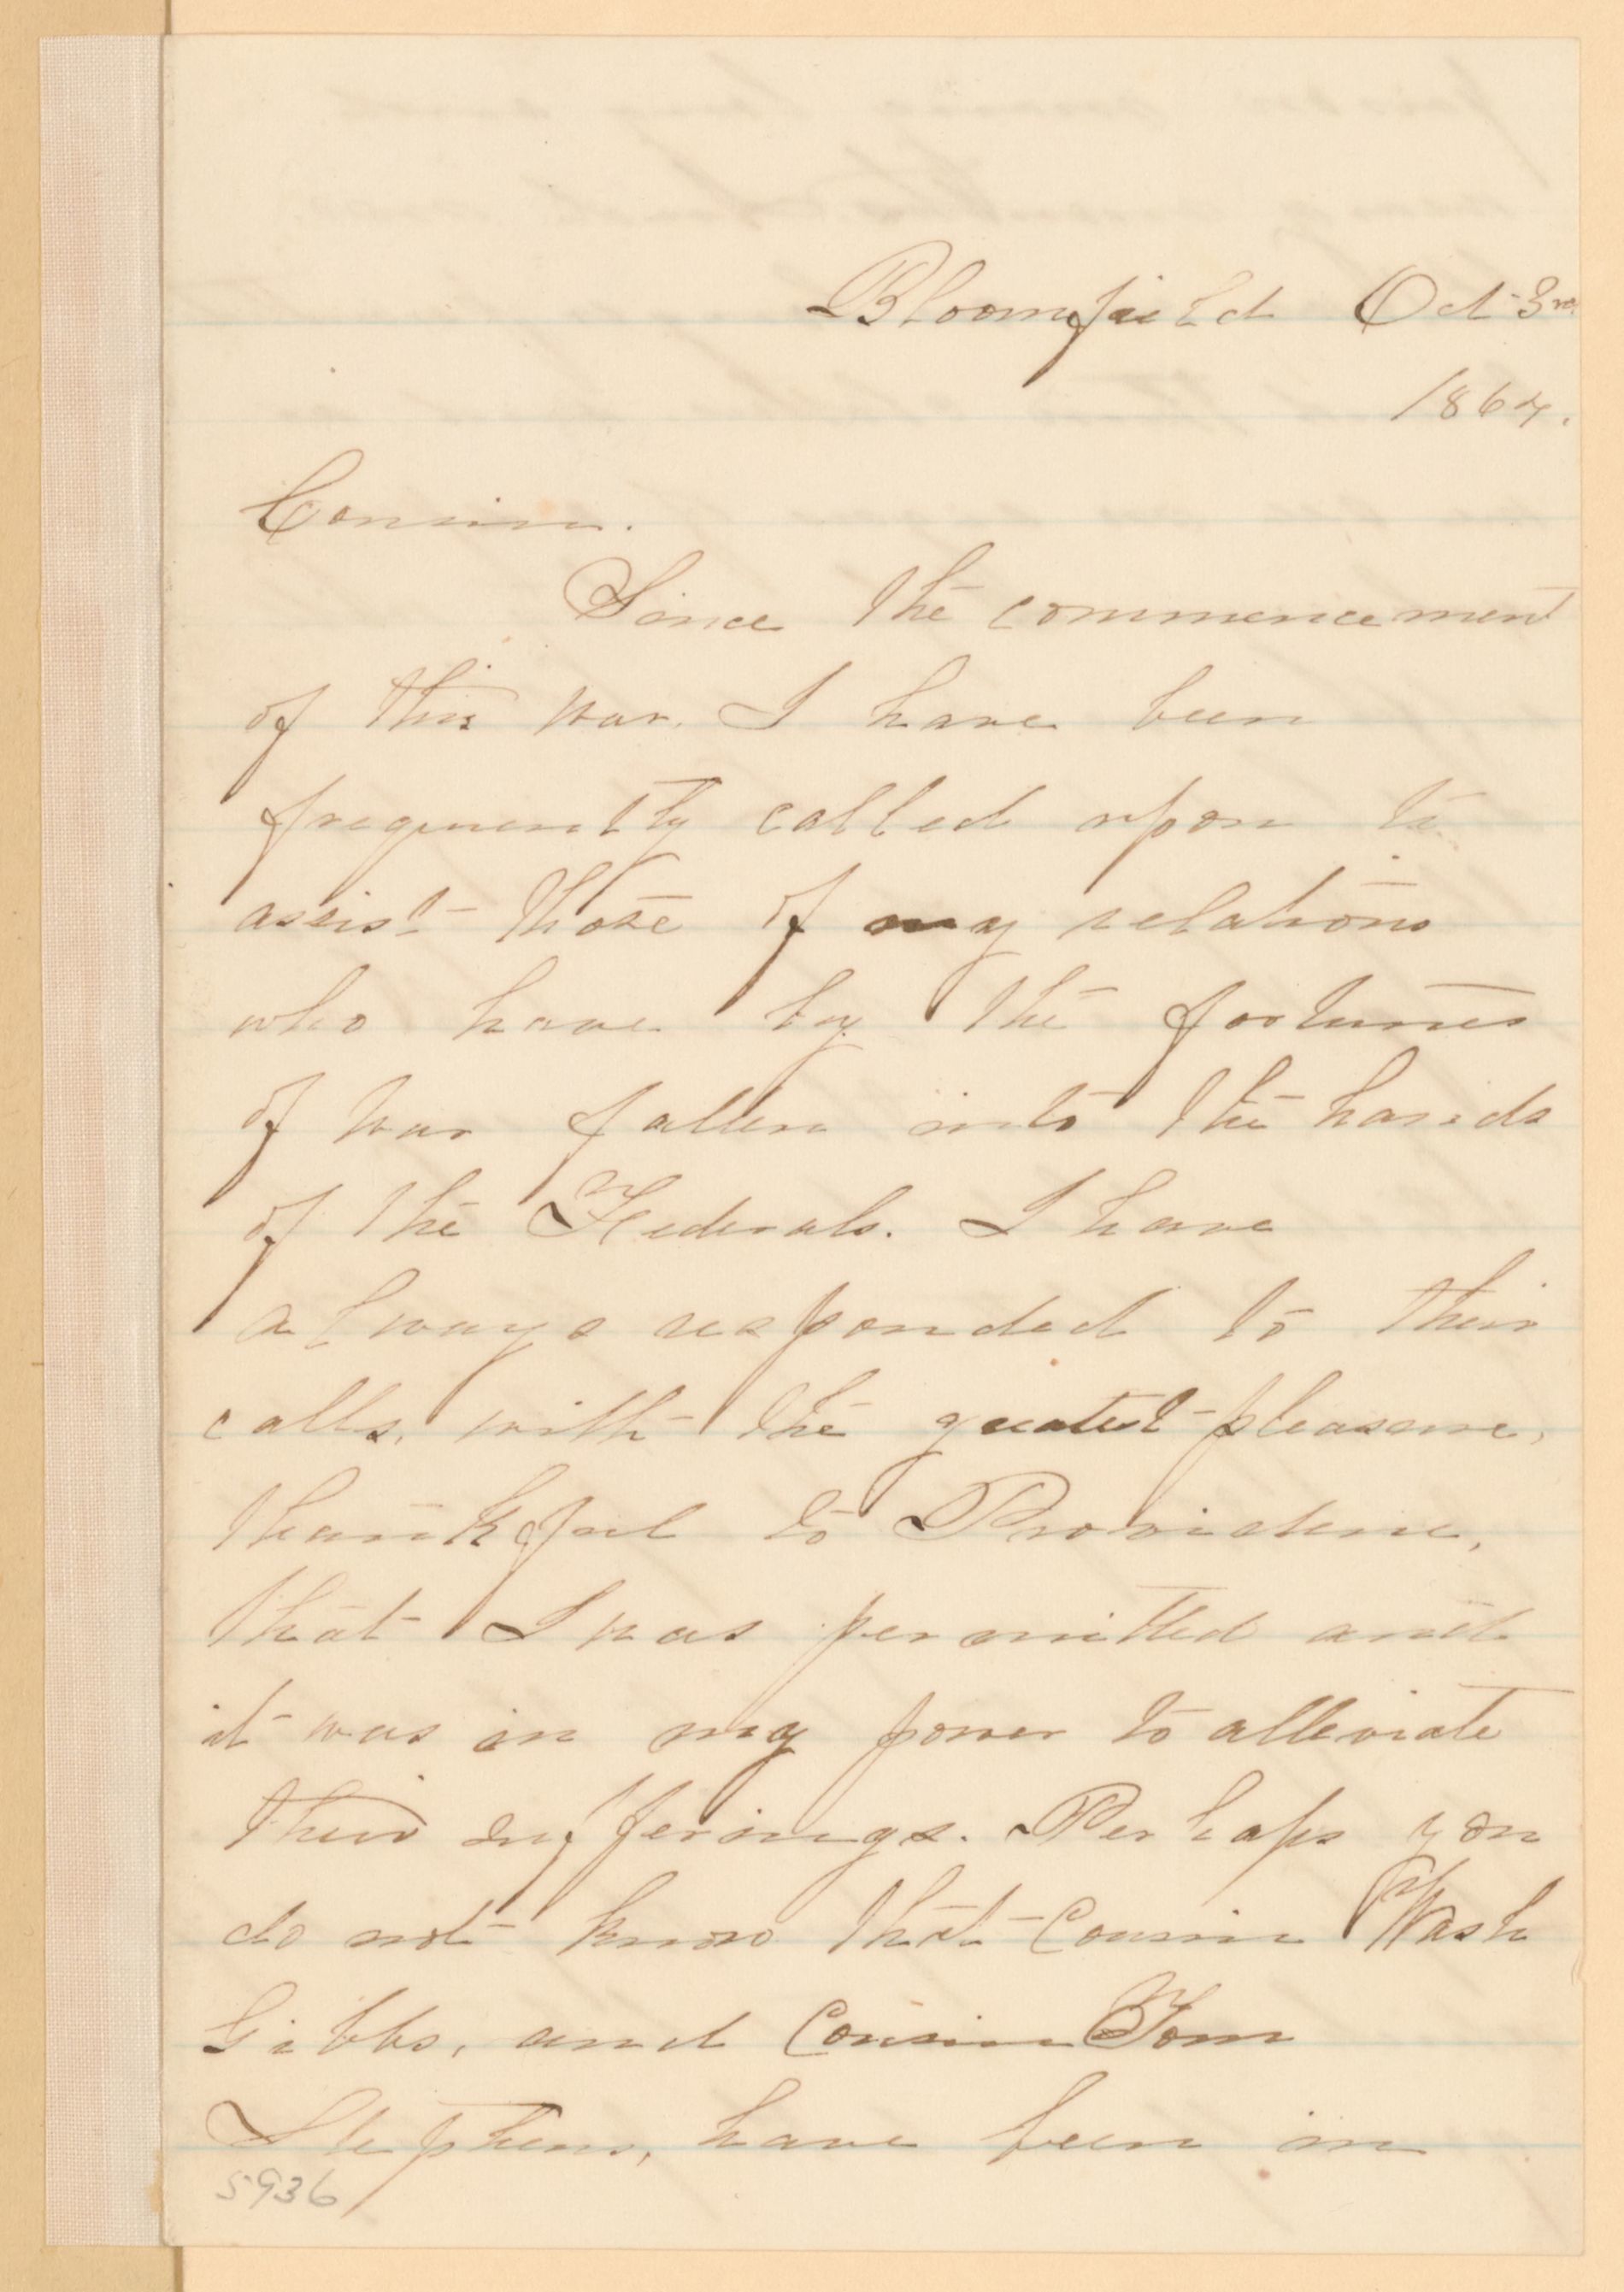 Bloomfield Oct 3rd
1864.
Cousin.
Since the commencement
of this war. I have been
frequently called upon to
assist those of my relations
who have by the fortunes
of war fallen into the hands
of the Federals. I have
always responded to their
calls, with the greatest pleasure,
thankful to Providence,
that I was permitted and
it was in my power to alleviate
their sufferings. Perhaps you
do not know that Cousin Wash
Gibbs, and Cousin Tom
Stephens, have been in
5936